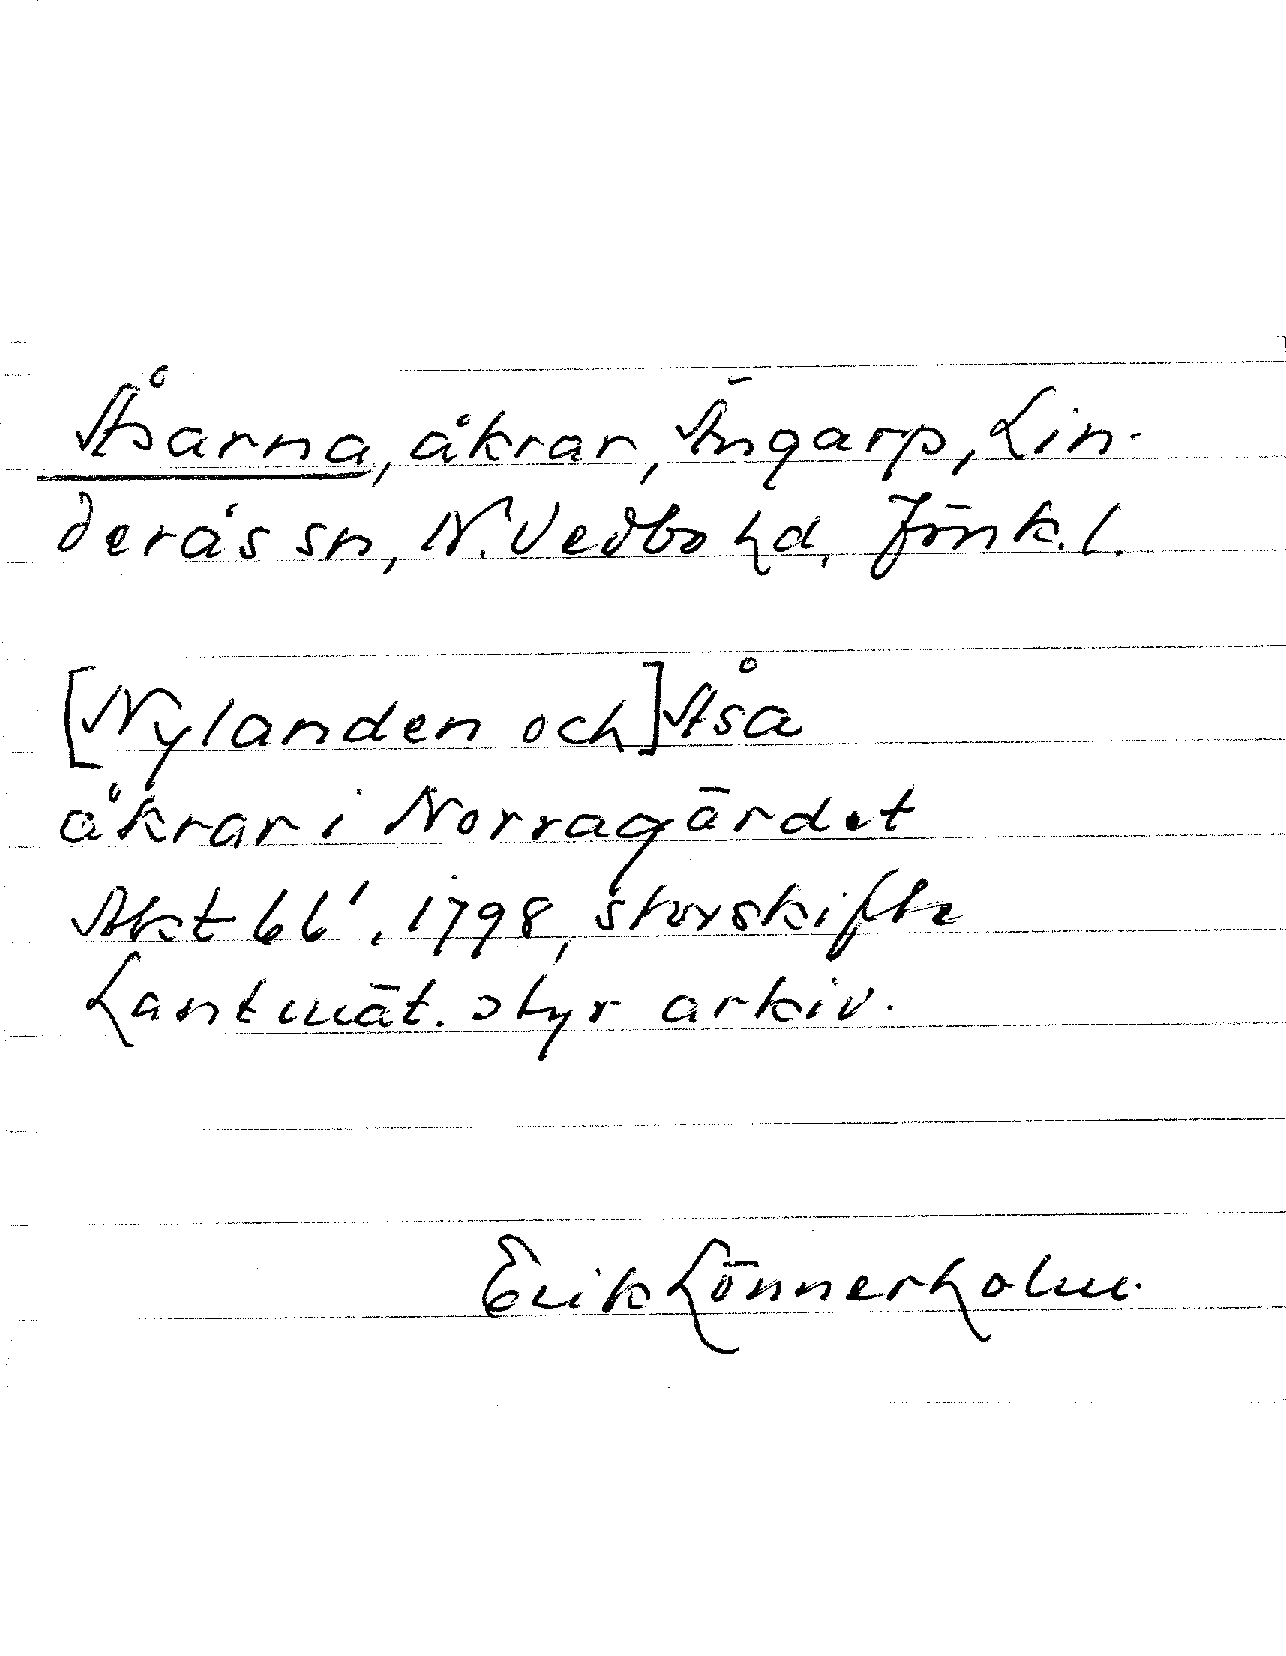 Åsarna, åkrar, Ängarp, Lin-
derås sn, N. Vedbo hd, Jönk. l.
[Nylanden och] Åsa
åkrar i Norragärdet
Akt 66', 1798, storskifte
Lantmät. styr arkiv.
Erik Lönnerholm.